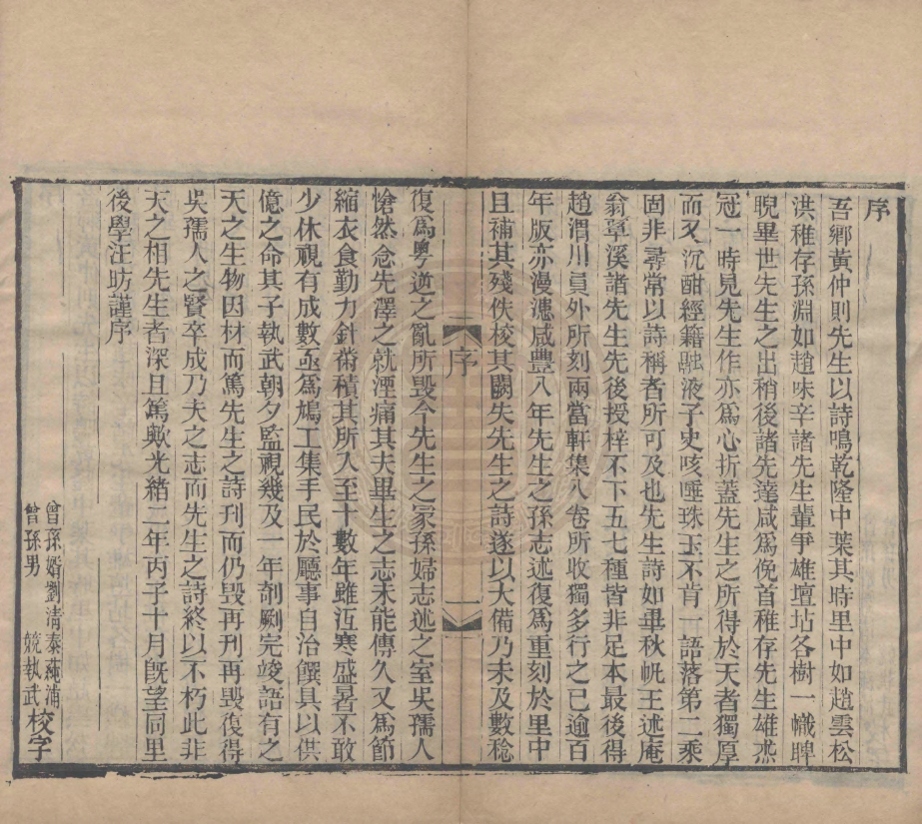 序
吾鄉黃仲則先生以詩鳴乾隆中葉其時里中如趙雲松
洪稚存孫淵如趙味辛諸先生輩爭雄壇坫各樹一幟睥
睨畢世先生之出稍後諸先達咸爲俛首稚存先生雄燾
冠一時見先生作亦爲心折蓋先生之所得於天者獨厚
而又沉酣經籍融液子史咳唾珠玉不肯一語落第二乘
固非尋常以詩稱者所可及也先生詩如畢秋㠩王述庵
翁覃溪諸先生先後授梓不下五七種皆非足本最後得
趙渭川員外所刻兩當軒集八卷所收獨多行之已逾百
年版亦漫漶咸豐八年先生之孫志述復爲重刻於里中
且補其殘佚校其闕失先生之詩遂以大備乃未及數稔
序
一
復爲粵逆之亂所毀今先生之冢孫婦志述之室吳孺人
愴然念先澤之就湮痛其夫畢生之志未能傳久又爲節
縮衣食勤力針黹積其所入至十數年雖沍寒盛暑不敢
少休視有成數亟爲鳩工集手民於廳事自治饌具以供
億之命其子執武朝夕監視幾及一年剞劂完竣語有之
天之生物因材而篤先生之詩刊而仍毀再刊再毀復得
吳孺人之賢卒成乃夫之志而先生之詩終以不朽此非
天之相先生者深且篤歟光緒二年丙子十月旣望同里
後學汪昉謹序
曾孫婿劉淸泰蒓浦
曾孫男競執武
校字